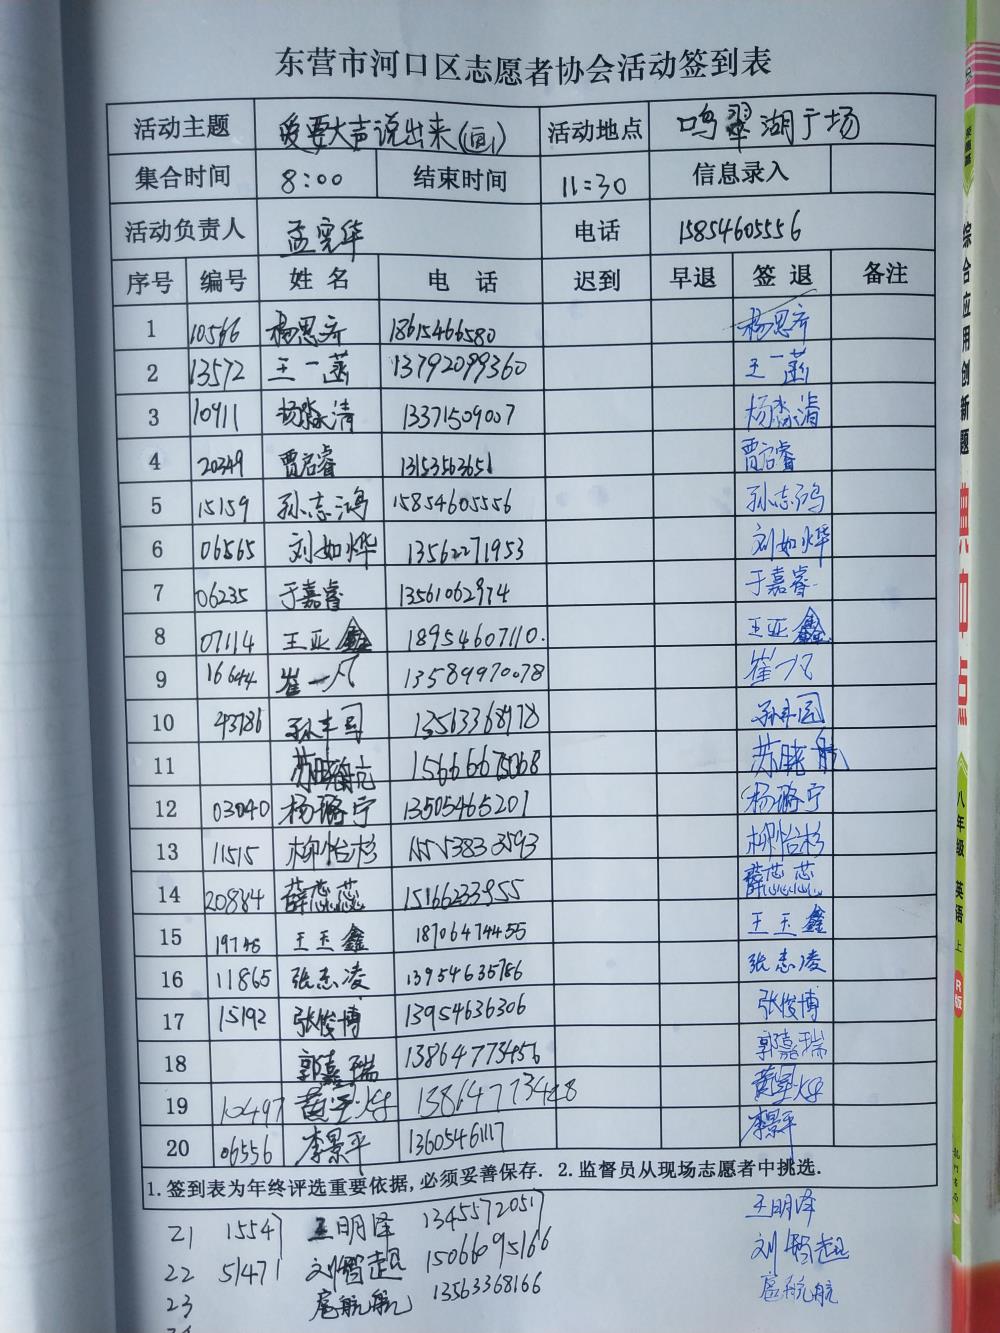 东营市河口区志愿者协会活动签到表
活动主题 爱要大声说出来 活动地点 鸣翠湖广场
集合时间 8:00 结束时间 11:30 信息录入
活动负责人 孟宪华 电话 15854605556
序号 编号 姓名 电话 迟到 早退 签退 备注
1 10566 杨思齐 18615466580 杨思齐
2 13572 王一菡 13792099360 王一菡
3 10911 杨淼清 13371509007 杨淼清
4 20349 贾启睿 13153563651 贾启睿
5 15159 孙志鸿 15854605556 孙志鸿
6 06565 刘如烨 13562271953 刘如烨
7 06235 于嘉睿 13561062974 于嘉睿
8 07114 王亚鑫 18954607110. 王亚鑫
9 16644 崔一凡 13589970078 崔一凡
10 43786 13563368978
11 苏晓航 苏晓航
12 03040 杨璐宁 13505465201 杨璐宁
13 11515 柳怡杉 柳怡杉
14 20884 薛蕊蕊 15166233955 薛蕊蕊
15 王玉鑫 18706474455 王玉鑫
16 11865 张志凌 13954635786 张志凌
17 15192 张俊博 13954636306 张俊博
18 郭嘉瑞 13864773456 郭嘉瑞
19 10497 13864773448
20 06556 李景平 13605461117 李景平
1.签到表为年终评选重要依据,必须妥善保存. 2.监督员从现场志愿者中挑选.
21 15547 王明泽 13455720517 王明泽
22 51471 刘智超 15066095166 刘智超
23 扈航航 13563368166 扈航航
综合应用创新题
典中点
八年级 英语 上
R版